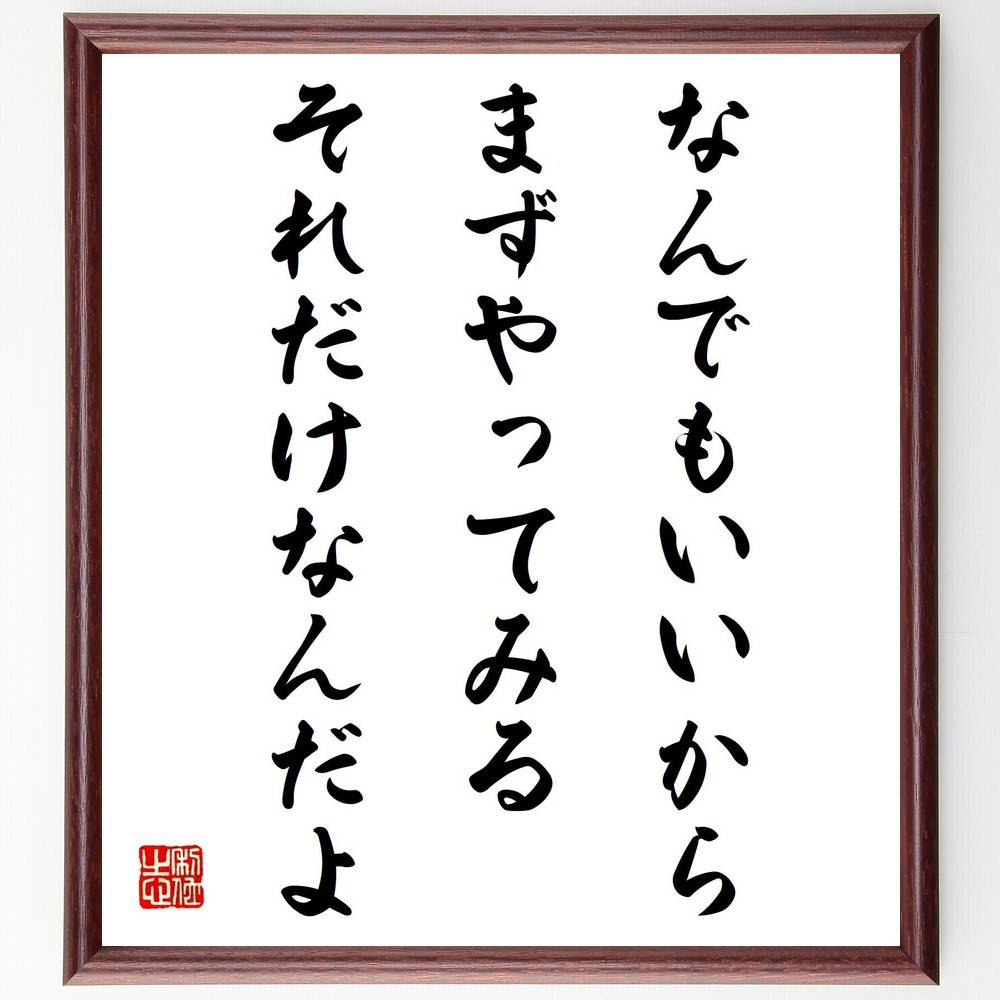 なんでもいいから
まずやってみる
それだけなんだよ